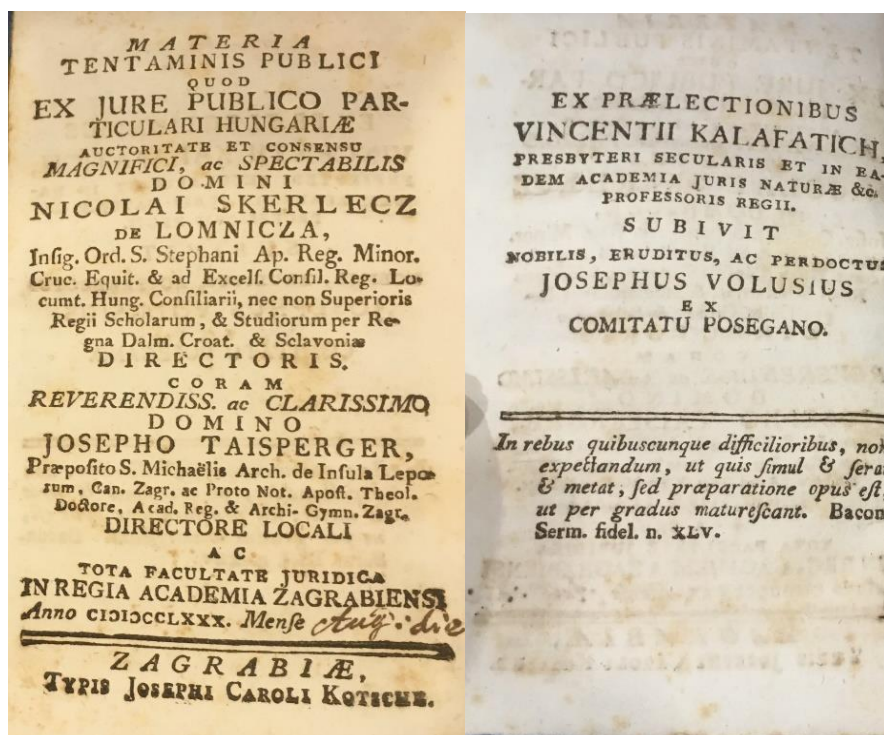 MATERIA
TENTAMINIS PUBLICI
QUOD
EX JURE PUBLICO PAR-
TICULARI HUNGARIÆ
AUCTORITATE ET CONSENSU
MAGNIFICI, ac SPECTABILIS
DOMINI
NICOLAI SKERLECZ
DE LOMNICZA,
Inſig. Ord. S. Stephani Ap. Reg. Minor.
Cruc. Equit. & ad Excelſ. Conſil. Reg. Lo-
cumt. Hung. Conſiliarii, nec non Superioris
Regii Scholarum, & Studiorum per Re-
gna Dalm. Croat. & Sclavoniæ
DIRECTORIS.
CORAM
REVERENDISS. ac CLARISSIMO
DOMINO
JOSEPHO TAISPERGER,
Præpoſito S. Michaëlis Arch. de Inſula Lepo-
rum, Can. Zagr. ac Proto Not. Apoſt. Theol.
Doctore, Acad. Reg. & Archi-Gymn. Zagr.
DIRECTORE LOCALI
AC
TOTA FACULTATE JURIDICA
IN REGIA ACADEMIA ZAGRABIENSI
Anno CIƆIƆCCLXXX. Menſe Aug. die
ZAGRABIÆ,
TYPIS JOSEPHI CAROLI KOTSCHE.
EX PRÆLECTIONIBUS
VINCENTII KALAFATICH,
PRESBYTERI SECULARIS ET IN EA-
DEM ACADEMIA JURIS NATURÆ &c.
PROFESSORIS REGII.
SUBIVIT
NOBILIS, ERUDITUS, AC PERDOCTUS
JOSEPHUS VOLUSIUS
EX
COMITATU POSEGANO.
In rebus quibuscunque difficilioribus, non
expectandum, ut quis ſimul & ſerat
& metat, ſed præparatione opus eſt,
ut per gradus matureſcant. Bacon
Serm. fidel. n. XLV.